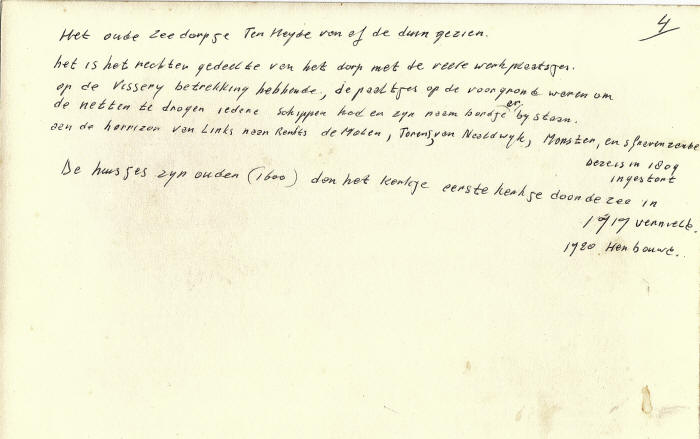 4
Het oude Zeedorpje Ten Heyde van af de duin gezien.
het is het rechten gedeelte van het dorp met de veele werkplaatsjes.
op de Vissery betrekking hebbende, de paaltjes op de voorgrond waren om
de netten te drogen iedere schipper had er zyn naam bordje by staan.
aan de horrizon van Links naar Rechts de Molen, Torens, van Naaldwyk, Monster, en s'Gravenzande
Deze is in 1809
ingestort
De huisjes zyn ouden (1600) dan het kerkje eerste kerkje door de zee in
1717 vernield.
1720. Herbouwt.